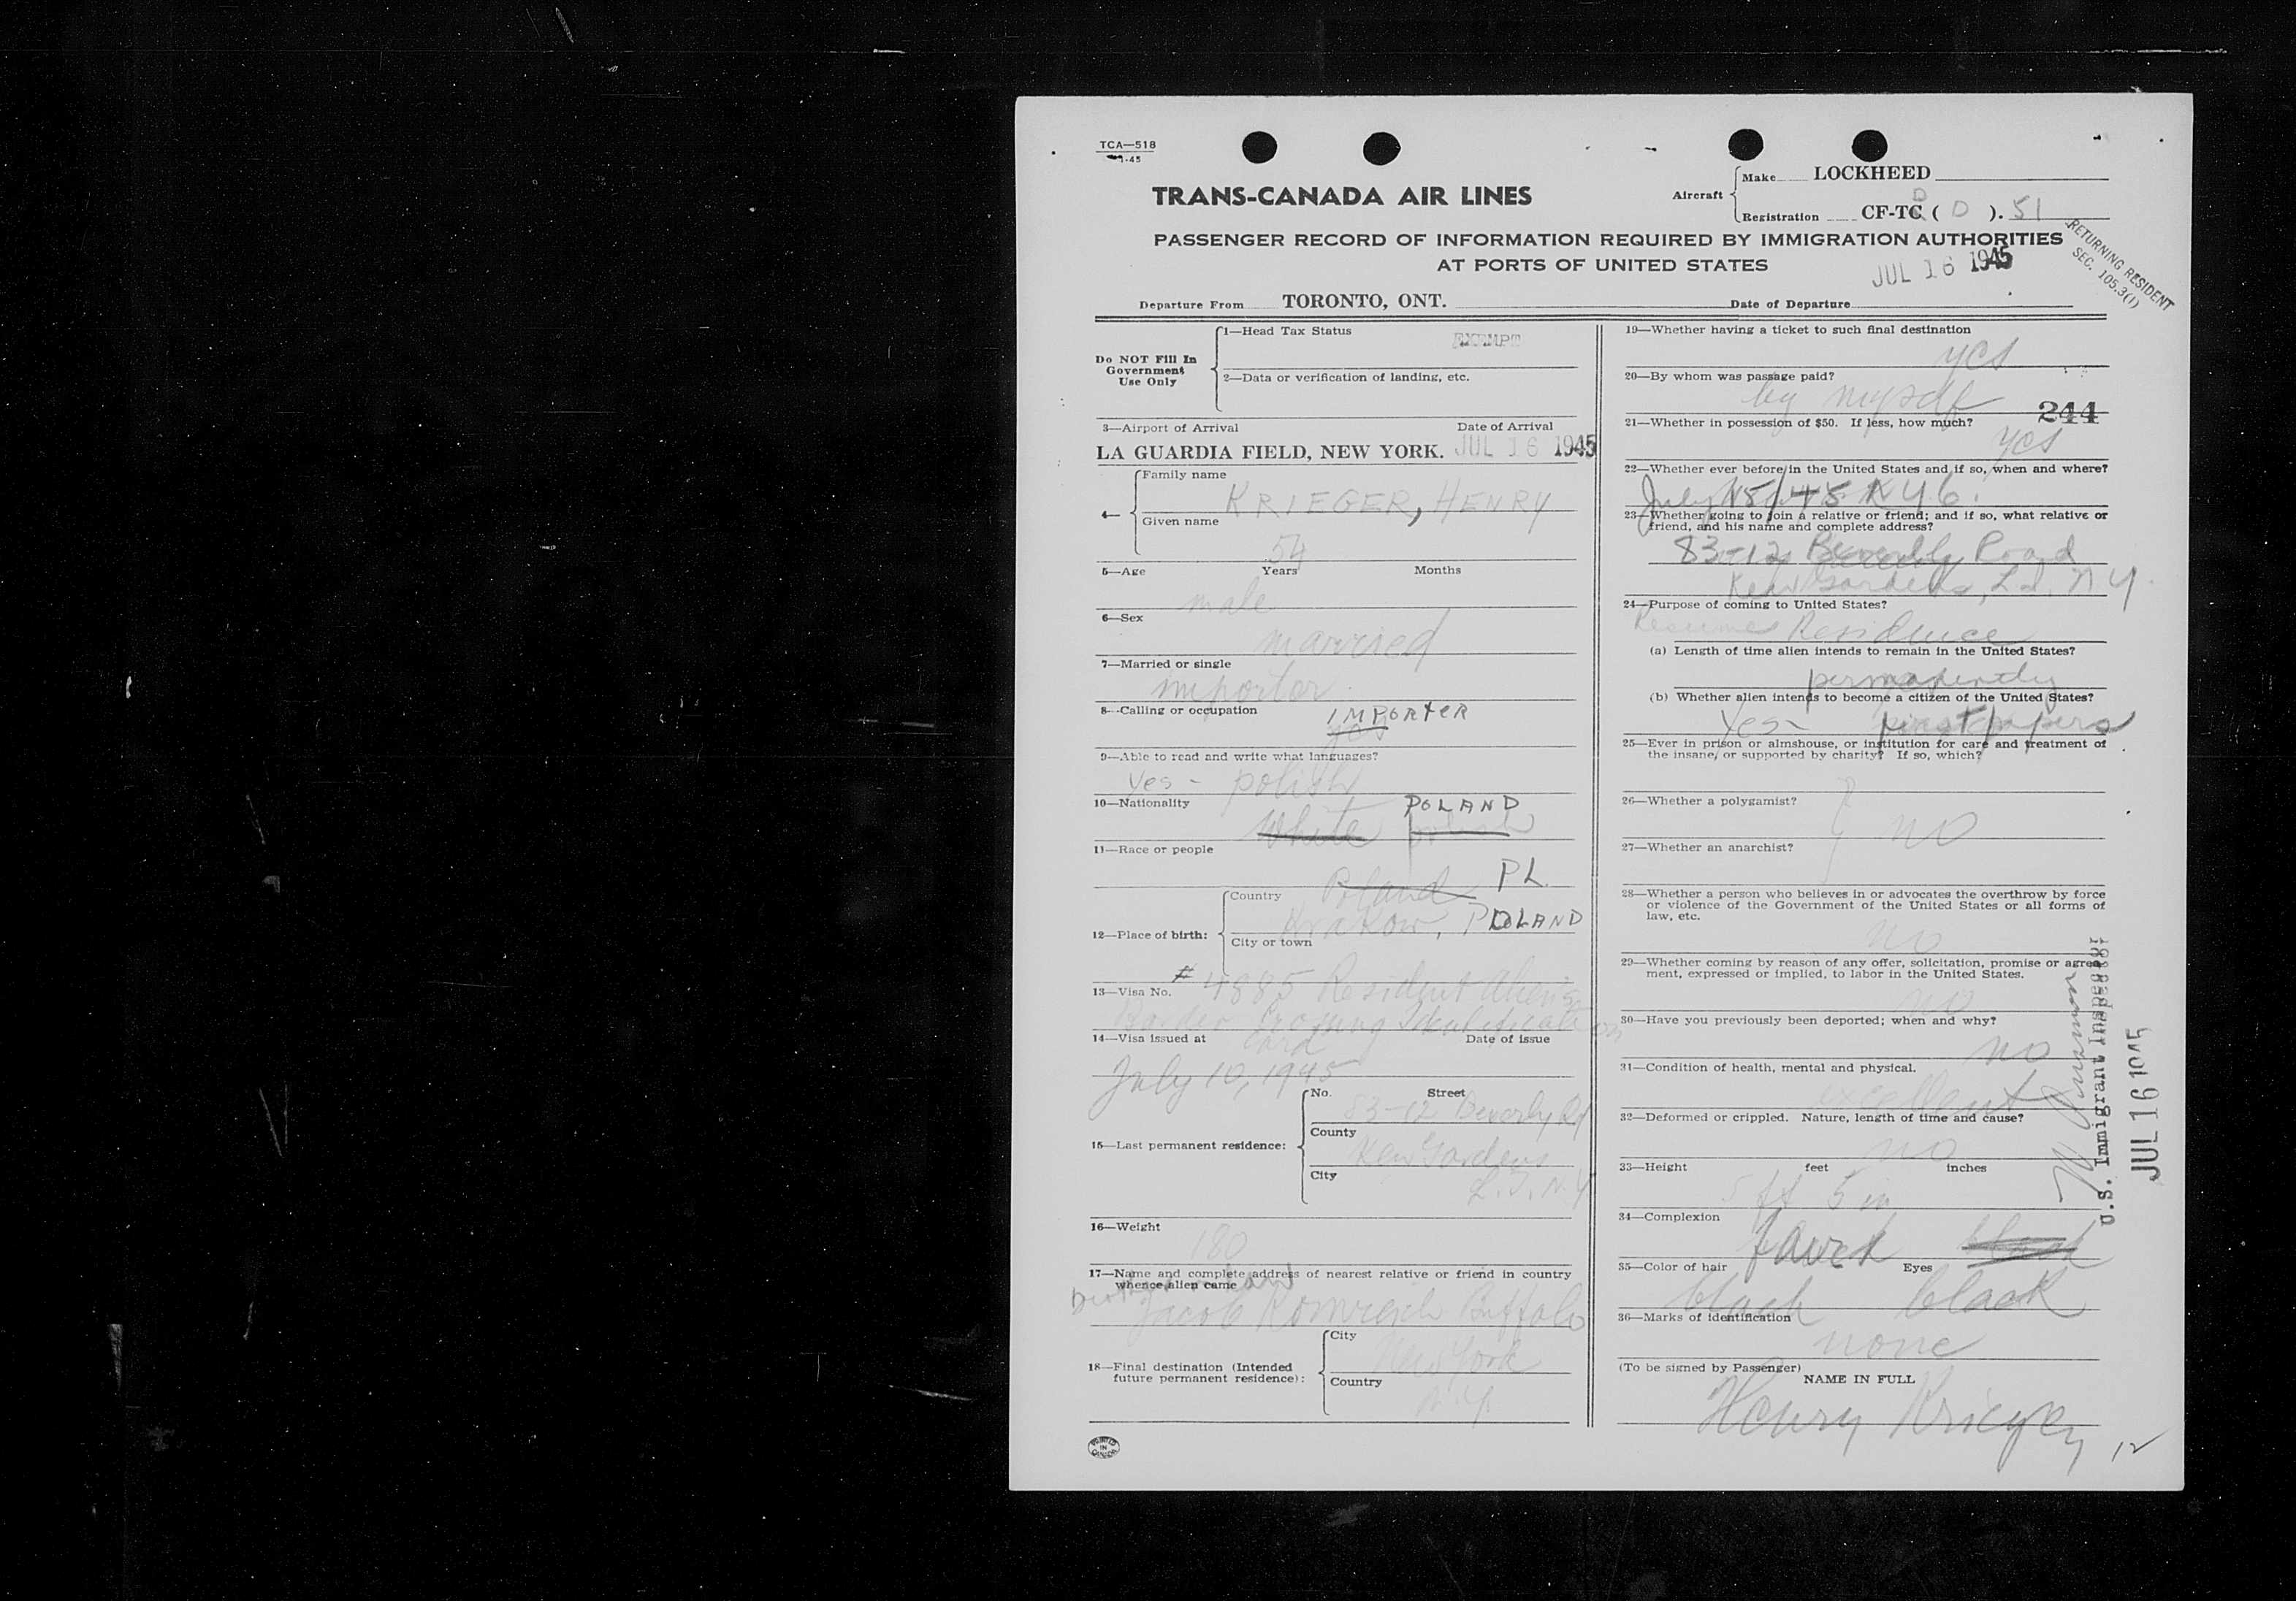 TCA—518
1-45
TRANS-CANADA AIR LINES
Aircraft
Make LOCKHEED
Registration CF-TC ( D ). 51
PASSENGER RECORD OF INFORMATION REQUIRED BY IMMIGRATION AUTHORITIES
AT PORTS OF UNITED STATES
JUL 16 1945
RETURNING RESIDENT
SEC. 105.3(1)
Departure From TORONTO, ONT. Date of Departure
Do NOT Fill In
Government
Use Only
1—Head Tax Status
EXEMPT
2—Data or verification of landing, etc.
3—Airport of Arrival Date of Arrival
LA GUARDIA FIELD, NEW YORK. JUL 16 1945
4—
Family name
KRIEGER, HENRY
Given name
54
5—Age Years Months
male
6—Sex
married
7—Married or single
importer
8—Calling or occupation
IMPORTER
yes
9—Able to read and write what languages?
Yes - polish
10—Nationality
POLAND
White
11—Race or people
PL
Country
Poland
12—Place of birth:
Krakow, POLAND
City or town
# 4885 Resident Alien's
13—Visa No.
Border Crossing Identification
14—Visa issued at Date of issue
card
July 10, 1945
No. Street
83-12 Beverly Rd
15—Last permanent residence:
County
Kew Gardens
City
L.I. N.Y
16—Weight
180
17—Name and complete address of nearest relative or friend in country
whence alien came
Jacob Buffalo
18—Final destination (Intended
future permanent residence):
City
New York
Country
N.Y.
19—Whether having a ticket to such final destination
yes
20—By whom was passage paid?
by myself
244
21—Whether in possession of $50. If less, how much?
yes
22—Whether ever before in the United States and if so, when and where?
July 15/45
23—Whether going to join a relative or friend; and if so, what relative or
friend, and his name and complete address?
83-12 Beverly Road
Kew Gardens, L.I. N.Y.
24—Purpose of coming to United States?
Resume Residence
(a) Length of time alien intends to remain in the United States?
permanently
(b) Whether alien intends to become a citizen of the United States?
Yes - first papers
25—Ever in prison or almshouse, or institution for care and treatment of
the insane, or supported by charity? If so, which?
26—Whether a polygamist?
no
27—Whether an anarchist?
28—Whether a person who believes in or advocates the overthrow by force
or violence of the Government of the United States or all forms of
law, etc.
no
29—Whether coming by reason of any offer, solicitation, promise or agree-
ment, expressed or implied, to labor in the United States.
no
30—Have you previously been deported; when and why?
no
31—Condition of health, mental and physical.
excellent
32—Deformed or crippled. Nature, length of time and cause?
no
33—Height feet inches
5 ft 5 in
34—Complexion
35—Color of hair Eyes
black black
36—Marks of identification
none
(To be signed by Passenger)
NAME IN FULL
Henry Krieger
12
U.S. Immigrant Inspector
JUL 16 1945
PRINTED
IN
CANADA